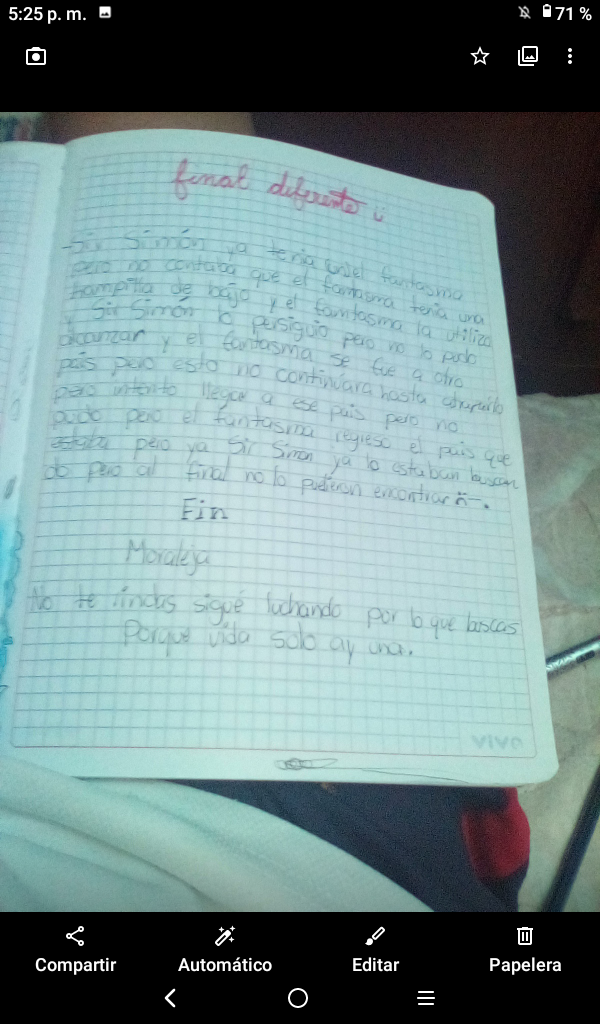 5:25 p. m.
71 %
final diferente
Sir Simón ya tenia el fantasma
pero no contaba que el fantasma tenia una
trampilla de bajo y el fantasma la utilizo
y Sir Simón lo persiguio pero no lo pudo
alcanzar y el fantasma se fue a otro
pais pero esto no continuara hasta
pero intento llegar a ese pais pero no
pudo pero el fantasma regreso el pais que
estaba pero ya Sir Simon ya lo estaban buscan
do pero al final no lo pudieron encontrar
Fin
Moraleja
No te rindas sigue luchando por lo que buscas
Porque vida solo ay una.
VIVO
Compartir
Automático
Editar
Papelera